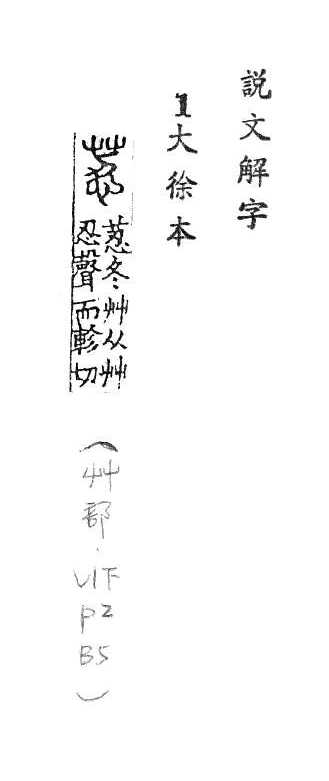 説文解字
1大徐本
荵
荵冬艸从艸
忍聲而軫切
(艸部.V1下P2B5)